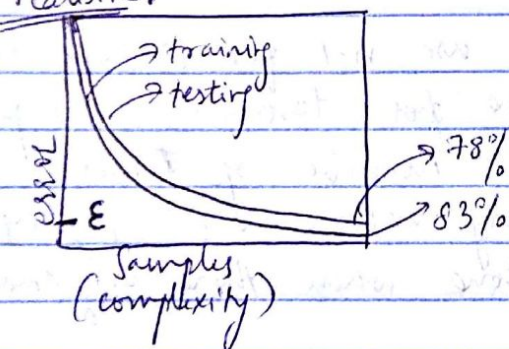 training
testing
78%
83%
error
ε
Samples
(complexity)